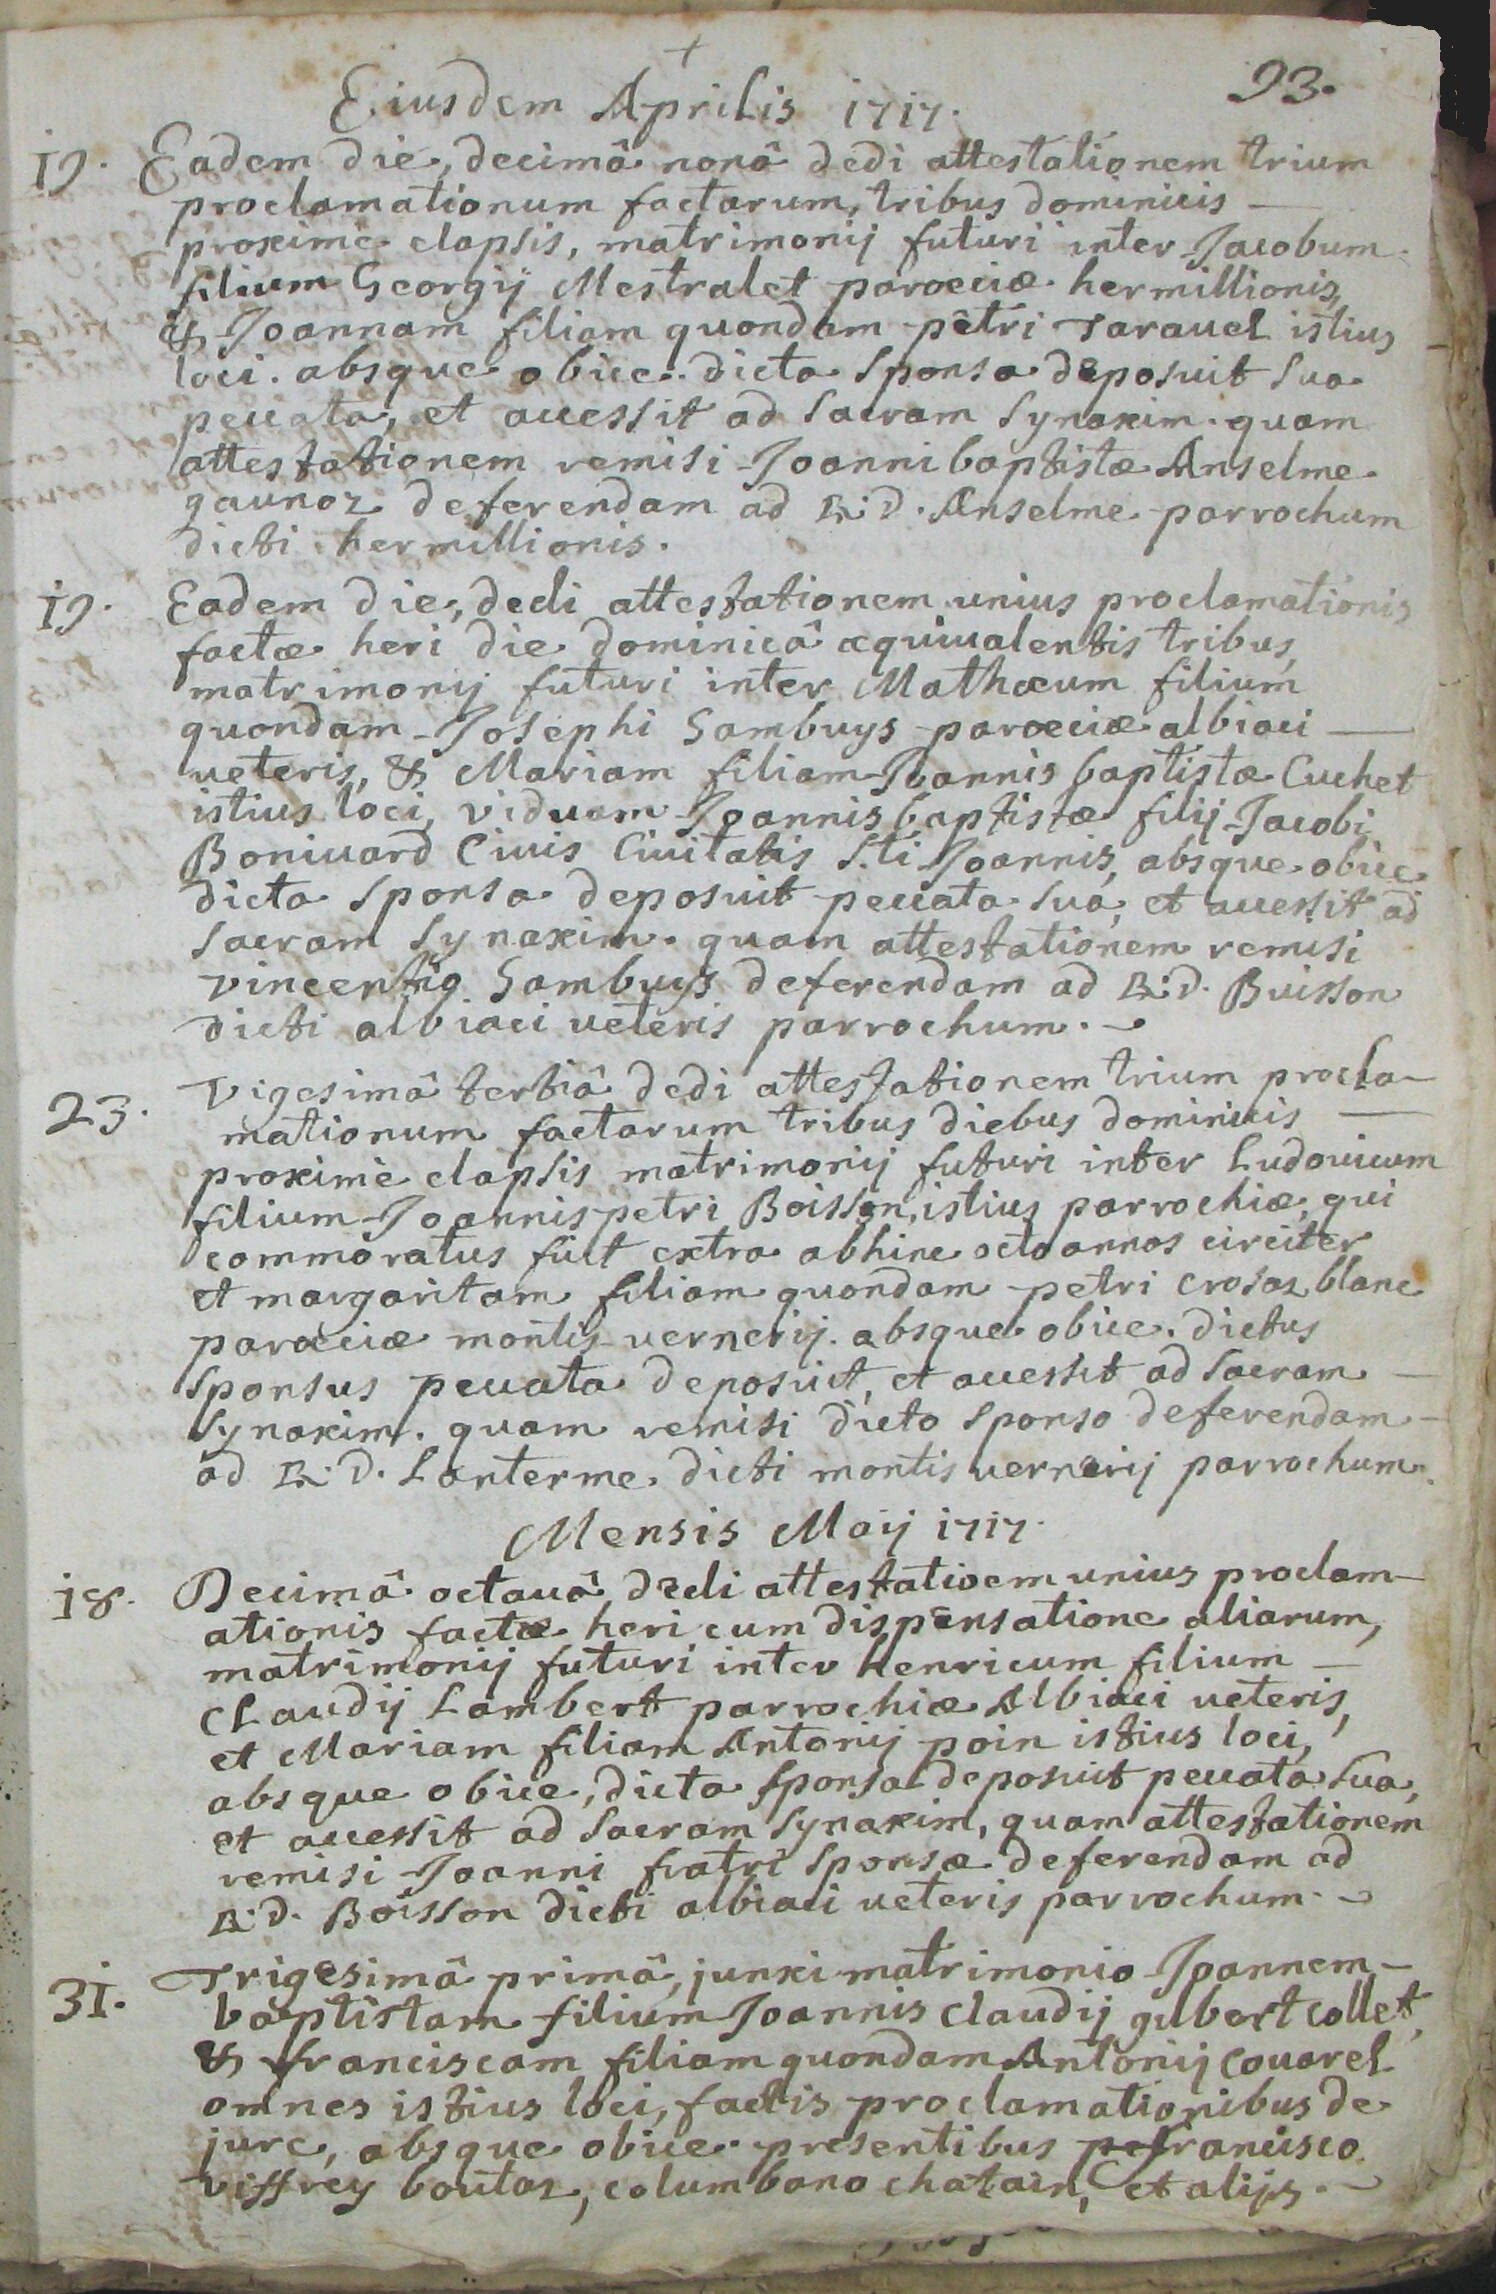 +
93.
Eiusdem Aprilis 1717.
19. Eadem die, decimâ nonâ dedi attestationem trium
proclamationum factarum, tribus dominicis —
proxime elapsis, matrimonij futuri inter Jacobum
filium Georgij Mestralet parœciæ hermillionis,
& Joannam filiam quondam petri Taravel istius
loci. absque obice. dicta sponsa deposuit sua
peccata, et accessit ad sacram synaxim. quam
attestationem remisi Joannibaptistæ Anselme
gaunoz deferendam ad R.D. Anselme parrochum
dicti hermillionis.
19. Eadem die, dedi attestationem unius proclamationis
factæ heri die dominicâ æquiualentis tribus,
matrimonij futuri inter Mathæum filium
quondam Josephi Sambuys parœciæ albiaci —
ueteris, & Mariam filiam Joannis baptistæ Cuchet
istius loci, viduam Joannis baptistæ filij Jacobi
Boniuard Ciuis Ciuitatis S.ti Joannis, absque obice
dicta sponsa deposuit peccata sua, et accessit ad
sacram synaxim. quam attestationem remisi
vincentio Sambuys deferendam ad R.D. Buisson
dicti albiaci ueteris parrochum.
23. Vigesimâ tertiâ dedi attestationem trium procla-
mationum factarum tribus diebus dominicis —
proximè elapsis matrimonij futuri inter Ludouicum
filium Joannispetri Boisson, istius parrochiæ, qui
commoratus fuit extra abhinc octo annos circiter
et margaritam filiam quondam petri crosaz blanc
parœciæ montis uernerij. absque obice. dictus
sponsus peccata deposuit, et accessit ad sacram —
synaxim. quam remisi dicto sponso deferendam —
ad R.D. Lanterme dicti montis uernerij parrochum.
Mensis Maij 1717.
18. Decimâ octauâ dedi attestatioem unius proclam-
ationis factæ heri cum dispensatione aliarum,
matrimonij futuri inter henricum filium —
Claudij Lambert parrochiæ Albiaci ueteris,
et Mariam filiam Antonij poin istius loci,
absque obice, dicta sponsa deposuit peccata sua,
et accessit ad sacram synaxim, quam attestationem
remisi Joanni fratri sponsæ deferendam ad
R.D. Boisson dicti albiaci ueteris parrochum.
31. Trigesimâ primâ, junxi matrimonio Joannem-
baptistam filium Joannis claudij gilbert collet,
& franciscam filiam quondam Antonij couarel
omnes istius loci, factis proclamationibus de
jure, absque obice. presentibus francisco
viffrey boutaz, columbano chatain, et alijs.